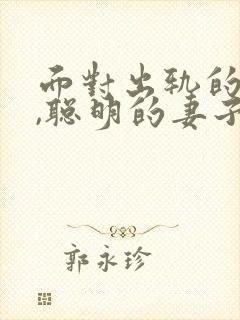 而對出轨的
,聰明的妻子
郭永珍